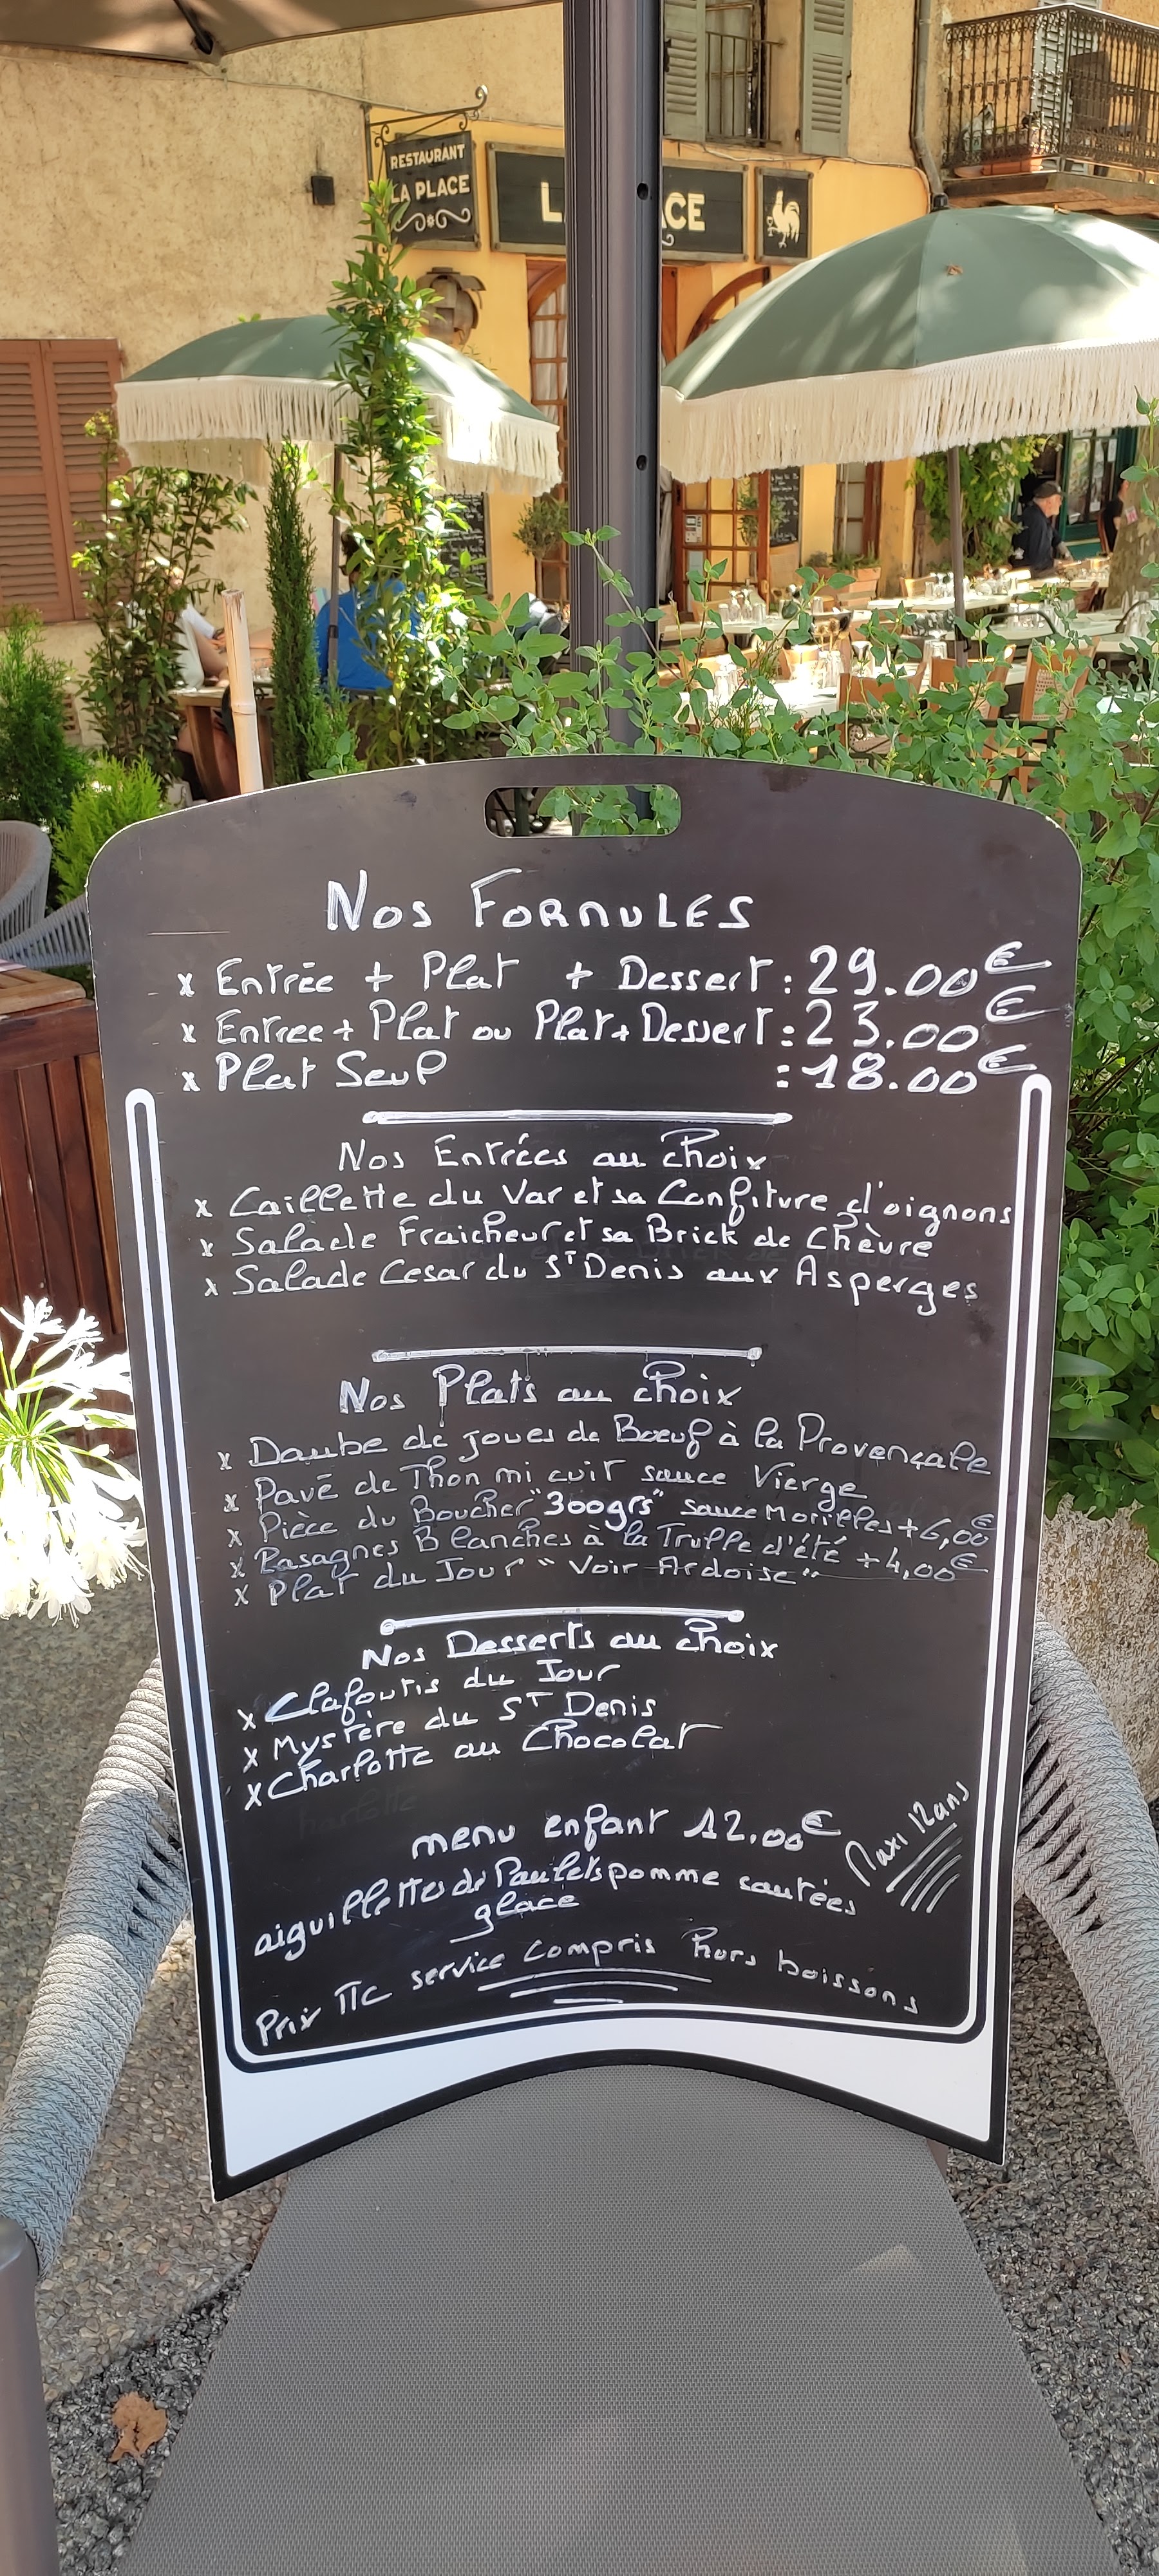 RESTAURANT
LA PLACE
Nos FORMULES
x Entrée + Plat + Dessert : 29.00€
x Entree + Plat ou Plat + Dessert : 23.00€
x Plat Seul : 18.00€
Nos Entrées au choix
x Caillette du Var et sa Confiture d'oignons
x Salade Fraicheur et sa Brick de Chèvre
x Salade Cesar du ST Denis aux Asperges
Nos Plats au choix
x Daube de joues de Bœuf à la Provençale
x Pavé de Thon mi cuit sauce Vierge
x Pièce du Boucher "300grs" sauce Morilles + 6,00€
x Lasagnes Blanches à la Truffe d'été + 4,00€
x Plat du Jour "Voir Ardoise"
Nos Desserts au choix
x Clafoutis du Jour
x Mystère du ST Denis
x Charlotte au Chocolat
menu enfant 12.00€
Maxi 12ans
aiguillettes de Poulets pomme sautées
glace
Prix TTC service compris hors boissons